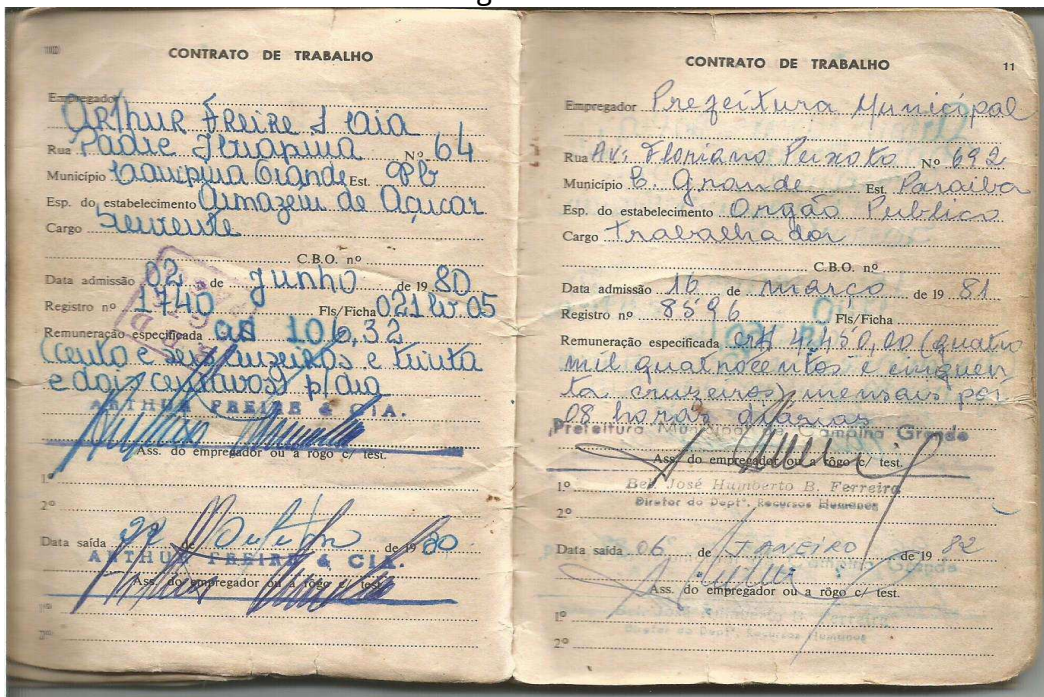 CONTRATO DE TRABALHO
Empregador
Arthur Freire & Cia
Rua Padre Ibiapina Nº 64
Município Campina Grande Est. Pb
Esp. do estabelecimento Armazem de Açucar
Cargo Servente
C.B.O. nº
Data admissão 02 de Junho de 19 80
Registro nº 1740 Fls/Ficha 021 Lv 05
Remuneração especificada 106,32
(cento e seis cruzeiros e trinta
e dois centavos) p/dia
ARTHUR FREIRE & CIA.
Ass. do empregador ou a rôgo c/ test.
1º
2º
Data saída de Outubro de 19 80
ARTHUR FREIRE & CIA.
Ass. do empregador ou a rôgo c/ test.
1º
2º
CONTRATO DE TRABALHO 11
Empregador Prefeitura Municipal
Rua Av: Floriano Peixoto Nº 692
Município C. Grande Est. Paraiba
Esp. do estabelecimento Orgão Publico
Cargo Trabalhador
C.B.O. nº
Data admissão 16 de março de 19 81
Registro nº 8596 Fls/Ficha
Remuneração especificada (quatro
mil quatrocentos e cinquen
ta cruzeiros) mensais por
08 horas diarias
Prefeitura Municipal Campina Grande
Ass. do empregador ou a rôgo c/ test.
1º Bel. José Humberto B. Ferreira
Diretor do Deptº. Recursos Humanos
2º
Data saída 06 de JANEIRO de 19 82
Grande
Ass. do empregador ou a rôgo c/ test.
1º Ferreira
Diretor do Deptº. Recursos Humanos
2º